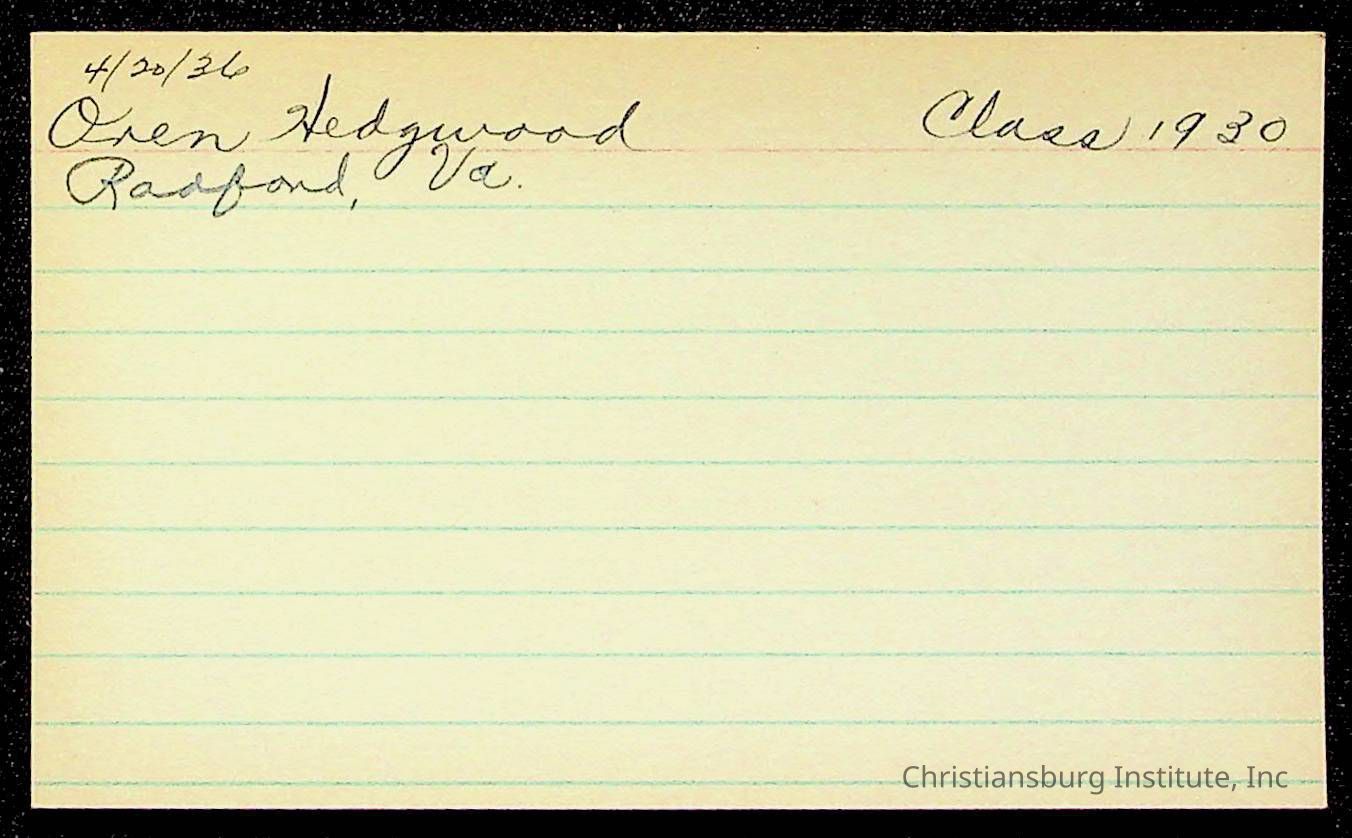 4/20/36
Oren Hedgwood Class 1930
Radford, Va.
Christiansburg Institute, Inc